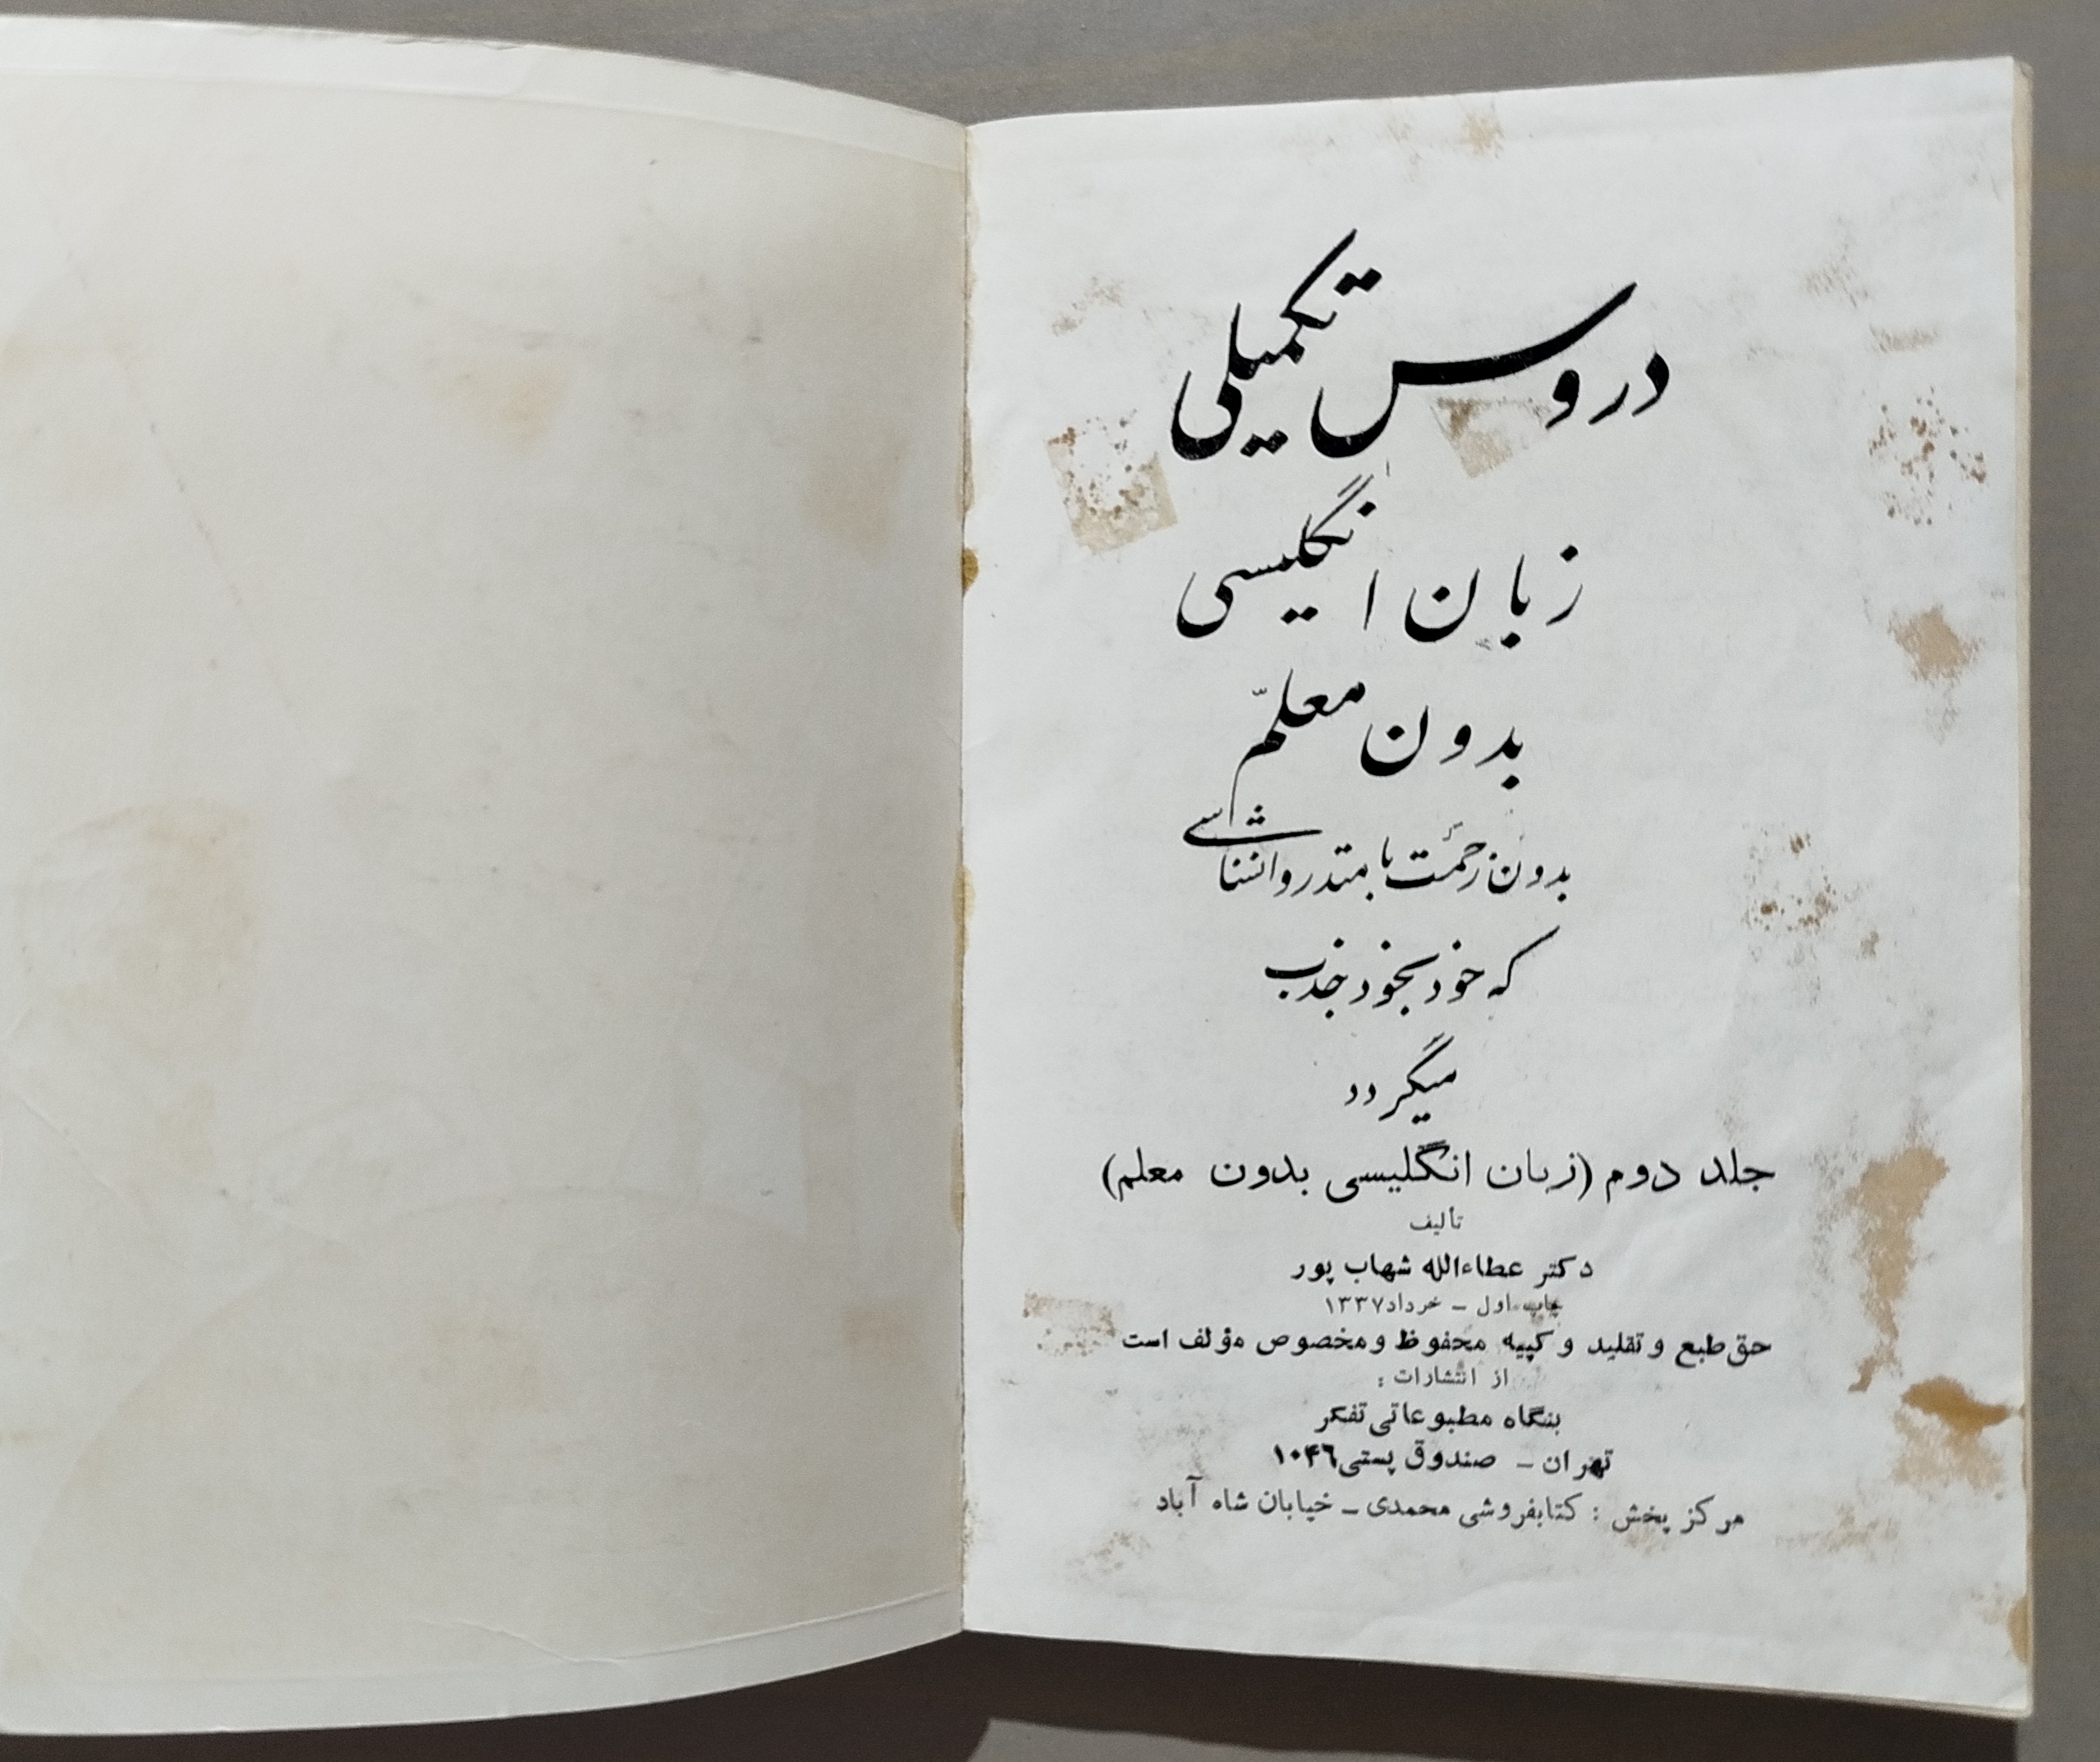 دروس تکمیلی
زبان انگلیسی
بدون معلّم
بدون زحمت با متد روانشناسی
که خود بخود جذب
میگردد
جلد دوم (زبان انگلیسی بدون معلم)
تألیف
دکتر عطاءالله شهاب پور
چاپ اول – خرداد ۱۳۳۷
حق طبع و تقلید و کپیه محفوظ و مخصوص مؤلف است
از انتشارات :
بنگاه مطبوعاتی تفکر
تهران – صندوق پستی ۱۰۴۶
مرکز پخش : کتابفروشی محمدی – خیابان شاه آباد